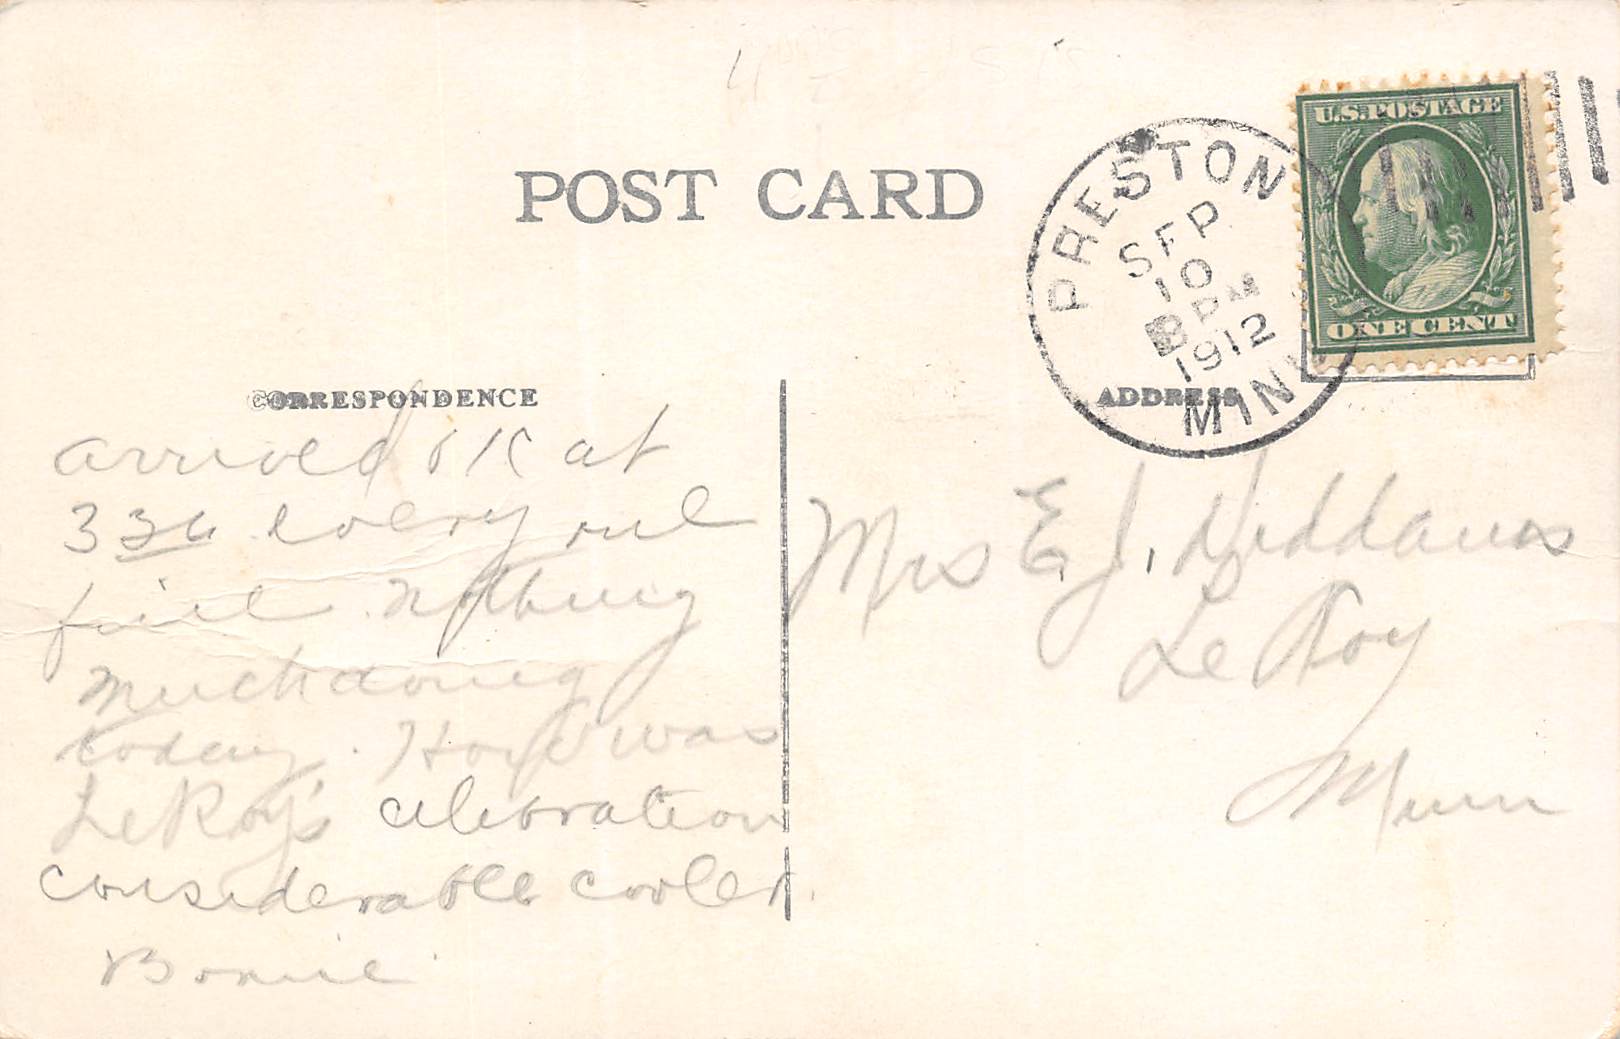 POST CARD
U.S. POSTAGE
ONE CENT
PRESTON
SEP
10
8 PM
1912
MINN
CORRESPONDENCE
ADDRESS
arrived OK at
3 30 every one
fine. Nothing
much doing
today. How was
LeRoy's celebration
considerable cooler.
Bonnie
Mrs E. J.
Le Roy
Minn